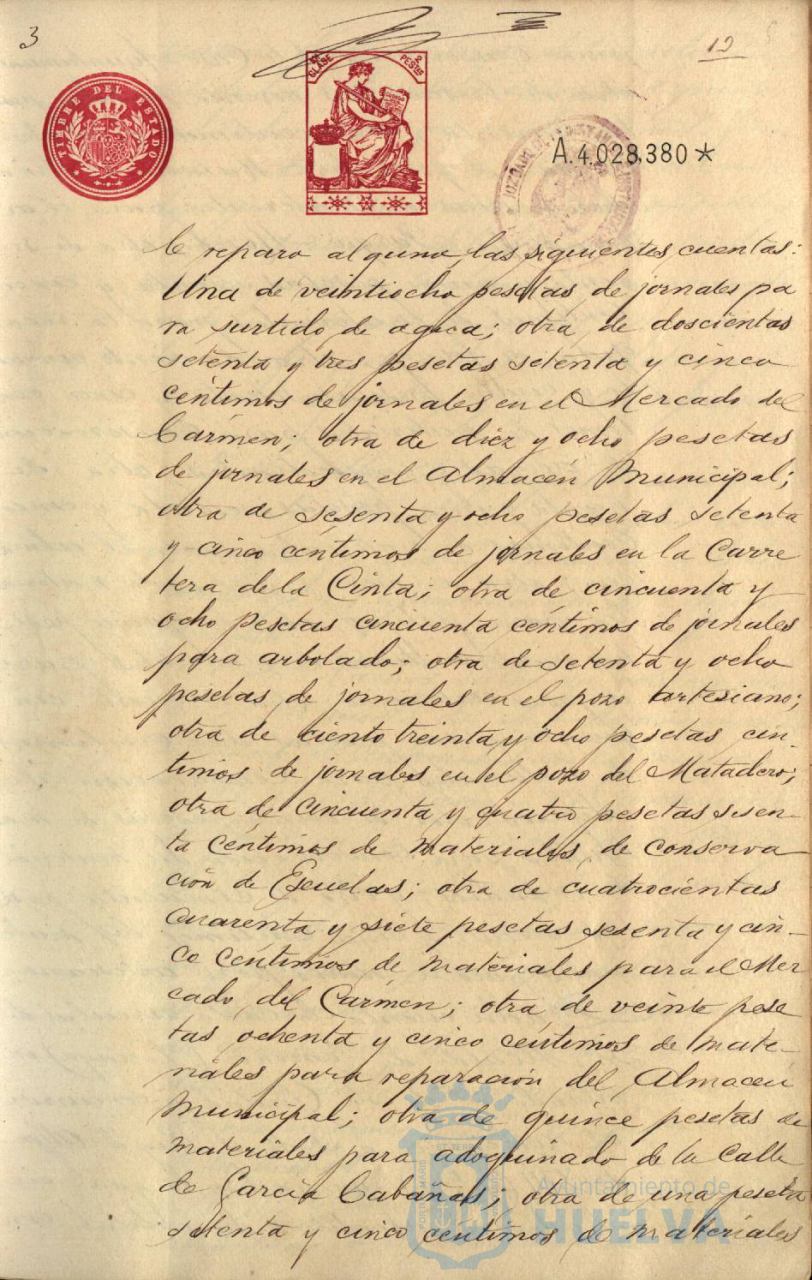 3
12
TIMBRE DEL ESTADO
CLASE
PESTAS
A.4,028,380 *
reparo alguno, las siguientes cuentas:
Una de veintiocho pesetas de jornales pa
ra surtido de agua; otra de doscientas
setenta y tres pesetas setenta y cinco
céntimos de jornales en el Mercado del
Cármen; otra de diez y ocho pesetas
de jornales en el Almacén Municipal;
otra de sesenta y ocho pesetas setenta
y cinco céntimos de jornales en la Carre
tera de la Cinta; otra de cincuenta y
ocho pesetas cincuenta céntimos de jornales
para arbolado; otra de setenta y ocho
pesetas de jornales en el pozo artesiano;
otra de ciento treinta y ocho pesetas cén-
timos de jornales en el pozo del Matadero;
otra de cincuenta y cuatro pesetas sesen-
ta céntimos de materiales de conserva
ción de Escuelas; otra de cuatrocientas
cuarenta y siete pesetas sesenta y cin-
co céntimos de materiales para el Mer
cado del Cármen; otra de veinte pese
tas ochenta y cinco céntimos de mate-
riales para reparación del Almacén
Municipal; otra de quince pesetas de
materiales para adoquinado de la Calle
de García Cabañas; otra de una peseta
setenta y cinco céntimos de materiales
Ayuntamiento de
HUELVA